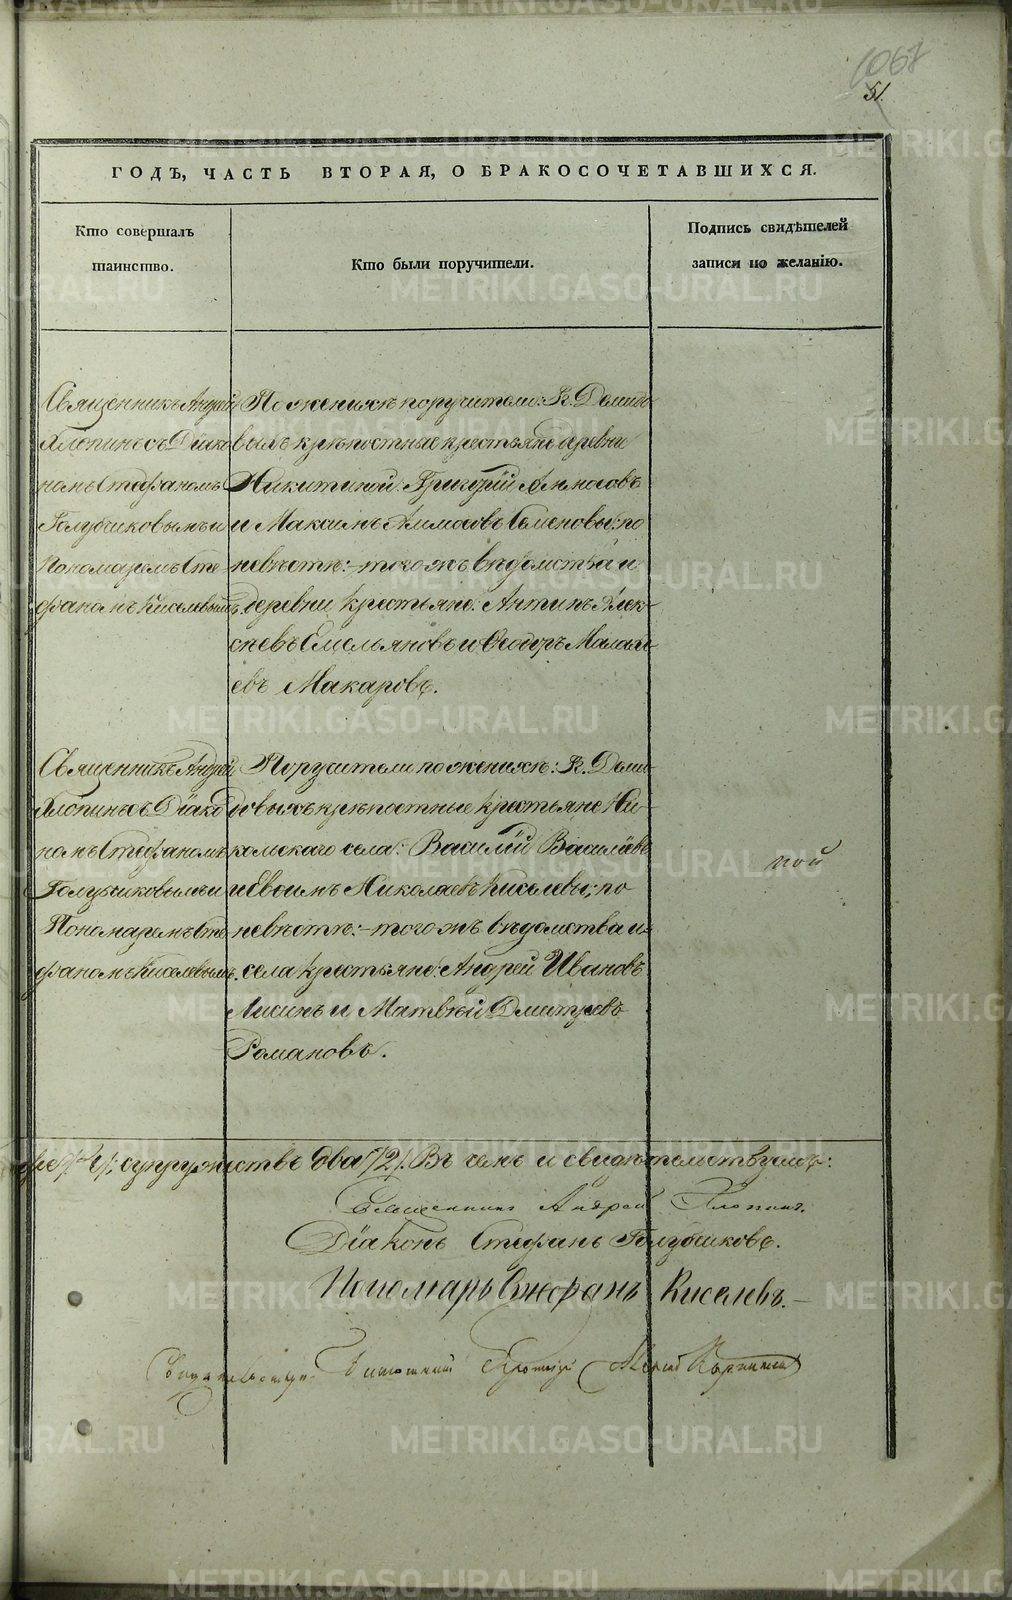 1067
51.
ГОДЪ, ЧАСТЬ ВТОРАЯ, О БРАКОСОЧЕТАВШИХСЯ.
Кто совершалъ
таинство.
Кто были поручители.
Подпись свидѣтелей
записи по желанію.
Священникъ Андрей
Хлопинъ съ Діако
номъ Стефаномъ
Голубчиковымъ и
Пономаремъ Сте
фаномъ Киселевымъ.
По женихѣ поручители: Г. Демидо
вымъ крѣпостные крестьяне деревни
Никитиной: Григорій
и Максимъ Семеновы; по
невѣстѣ: того жъ вѣдомства и
деревни крестьяне: Антипъ Алек
сѣевъ Емельяновъ и Ѳеодоръ
евъ Макаровъ.
Священникъ Андрей
Хлопинъ съ Діако
номъ Стефаномъ
Голубчиковымъ и
Пономаремъ Сте
фаномъ Киселевымъ.
Поручители по женихѣ: Г. Деми
довыхъ крѣпостные крестьяне
села: Василій Васильевъ
и Николаевъ Киселевы; по
невѣстѣ: того жъ вѣдомства и
села крестьяне: Андрей Ивановъ
Лисинъ и Матвѣй Дмитріевъ
Романовъ.
супружествъ два /2/. Въ чемъ и свидѣтельствуемъ:
Священникъ Андрей Хлопинъ.
Діаконъ Стефанъ Голубчиковъ.
Пономарь Стефанъ Киселевъ.
METRIKI.GASO-URAL.RU